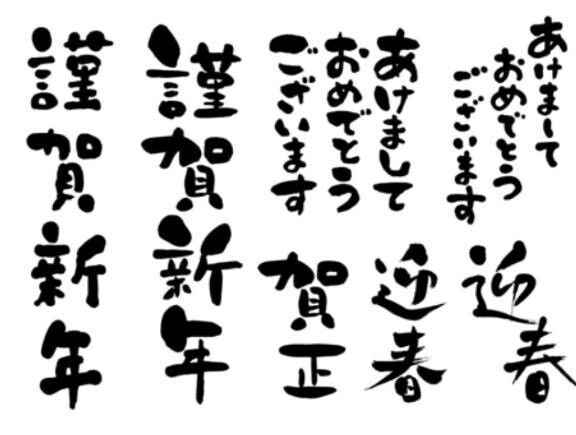 謹賀新年
謹賀新年
あけまして
おめでとう
ございます
あけまして
おめでとう
ございます
賀正
迎春
迎春